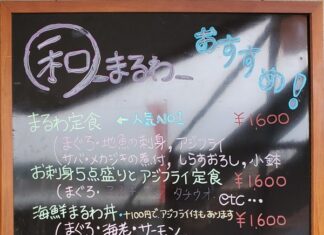 和 まるわ
おすすめ!
まるわ定食 ← 人気NO1 ¥1,600
(まぐろ・地魚の刺身, アジフライ
サバ・メカジキの煮付, しらすおろし, 小鉢
お刺身5点盛りとアジフライ定食 ¥1,600
(まぐろ・ タチウオ etc...
海鮮まるわ丼 ・+100円で、アジフライ付もあります ¥1,600
(まぐろ・海老・サーモン